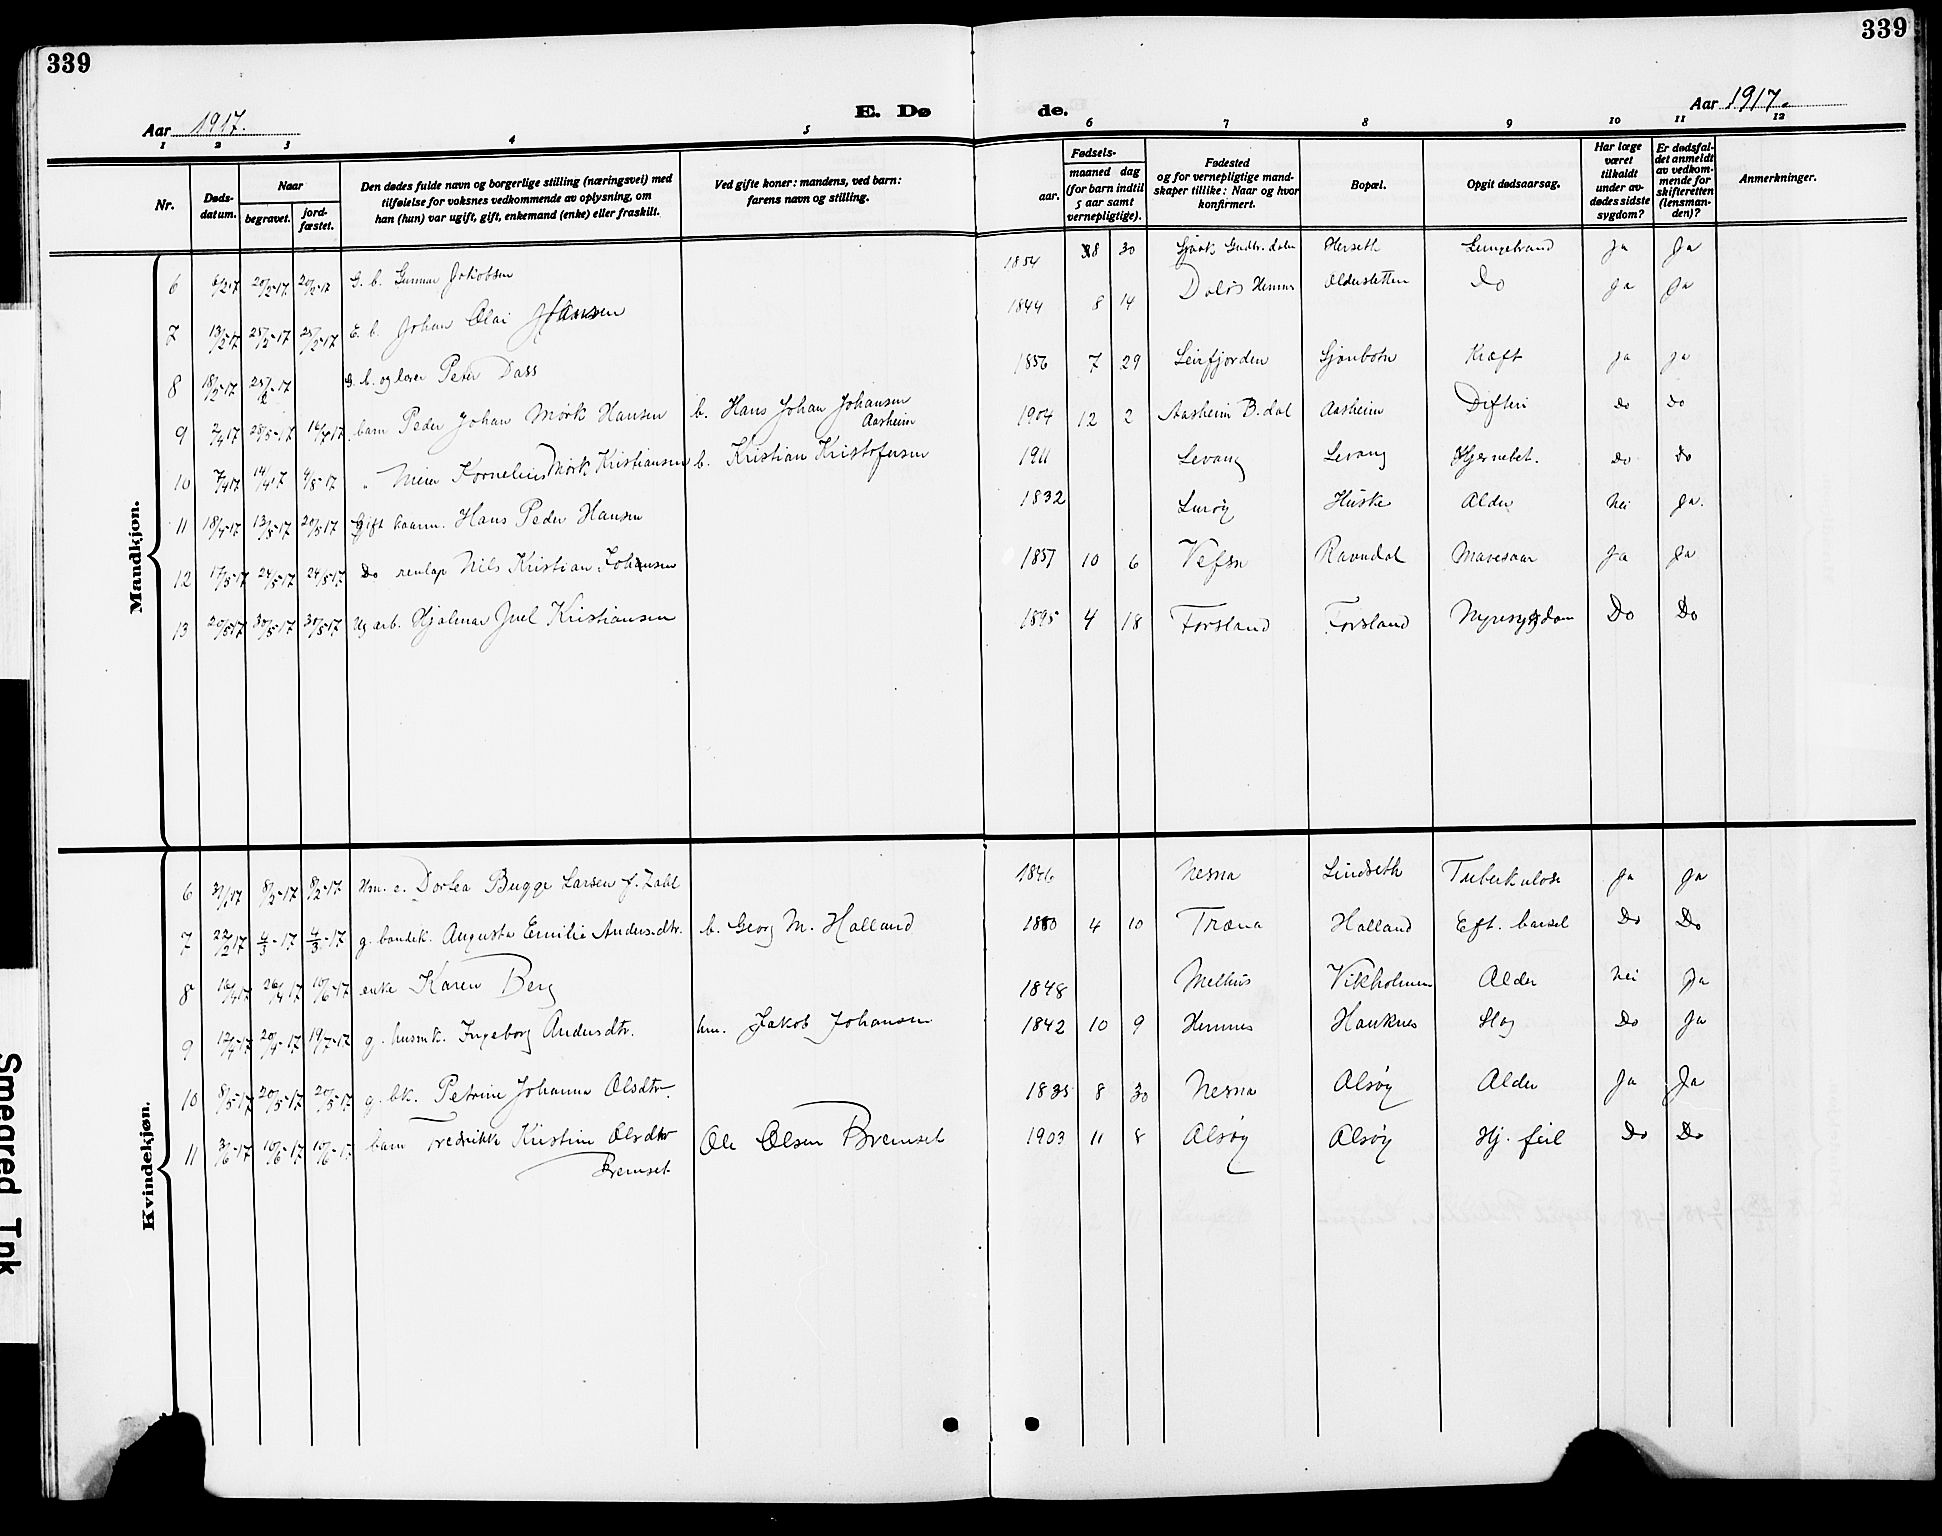 339
339
Aar 1917.
E. Dø
de.
Aar 1917.
1 2 3 4 5 6 7 8 9 10 11 12
Nr.
Døds-
datum.
Naar
begravet.
jord-
fæstet.
Den dødes fulde navn og borgerlige stilling (næringsvei) med
tilføielse for voksnes vedkommende av oplysning, om
han (hun) var ugift, gift, enkemand (enke) eller fraskilt.
Ved gifte koner: mandens, ved barn:
farens navn og stilling.
aar.
Fødsels-
maaned dag
(for barn indtil
5 aar samt
vernepligtige).
Fødested
og for vernepligtige mand-
skaper tillike: Naar og hvor
konfirmert.
Bopæl.
Opgit dødsaarsag.
Har læge
været
tilkaldt
under av-
dødes sidste
sygdom?
Er dødsfal-
det anmeldt
av vedkom-
mende for
skifteretten
(lensman-
den)?
Anmerkninger.
Mandkjøn.
6 6/2 17 20/2-17 20/2-17 G. b. Gunnar Jakobsen 1854 8 30 Herseth Lungebrand Ja Ja
7 13/2-17 25/2-17 25/2-17 E. b. Johan Olai 1844 8 14 Hemnes Do Ja Ja
8 18/2-17 G. b. og lærer Peter Dass 1856 7 29 Leirfjorden Sjonbotn Kræft Ja Ja
9 2/4 17 barn Peder Johan Mørk Hansen b. Hans Johan Johansen Aasheim 1904 12 2 Aasheim B. dal Aasheim Difteri Do Do
10 7/4 17 14/4 17 " Meier Kornelius Mørk Kristiansen b. Kristian Kristofersen 1911 Levang Levang Hjernebet. Do Do
11 18/4-17 13/5-17 20/5 17 Gift kaarm. Hans Peder Hansen 1832 Lurøy Huske Alder Nei Ja.
12 17/5-17 24/5-17 24/5-17 Do renlap Nils Kristian Johansen 1857 10 6 Vefsn Ravndal Mavesaar Ja Ja
13 20/5 17 30/5-17 30/5-17 Ug arb. Hjalmar Juel Kristiansen 1895 4 18 Forsland Forsland Nyresygdom Do Do
Kvindekjøn.
6 31/1 17 8/2-17 8/2-17 Hm. e. Dortea Bugge Larsen f. Zahl 1846 Nesna Lindseth Tuberkulose Ja Ja
7 22/2 17 4/3-17 4/3-17 g. bondek. Augusta Emilie Andersdtr. b. Georg M. Halland 1880 4 10 Træna Halland Eft. barsel Do Do
8 16/4 17 26/4 17 10/6-17 enke Karen Berg 1848 Melhus Vikholmen Alder Nei Ja
9 12/4-17 20/4-17 19/7-17 g. husmk. Ingeborg Andersdtr. hm. Jakob Johansen 1842 10 9 Hemnes Hauknes Slag Do Ja
10 8/5-17 20/5-17 20/5-17 g. bk. Petrine Johanna Olsdtr. 1835 8 30 Nesna Alsøy Alder Ja Ja
11 3/6-17 10/6-17 10/6-17 barn Fredrikke Kristine Olsdtr Ole Olsen Bremset 1903 11 8 Alsøy Alsøy Hj. feil Do Do
Bremset
Smegred Tnk